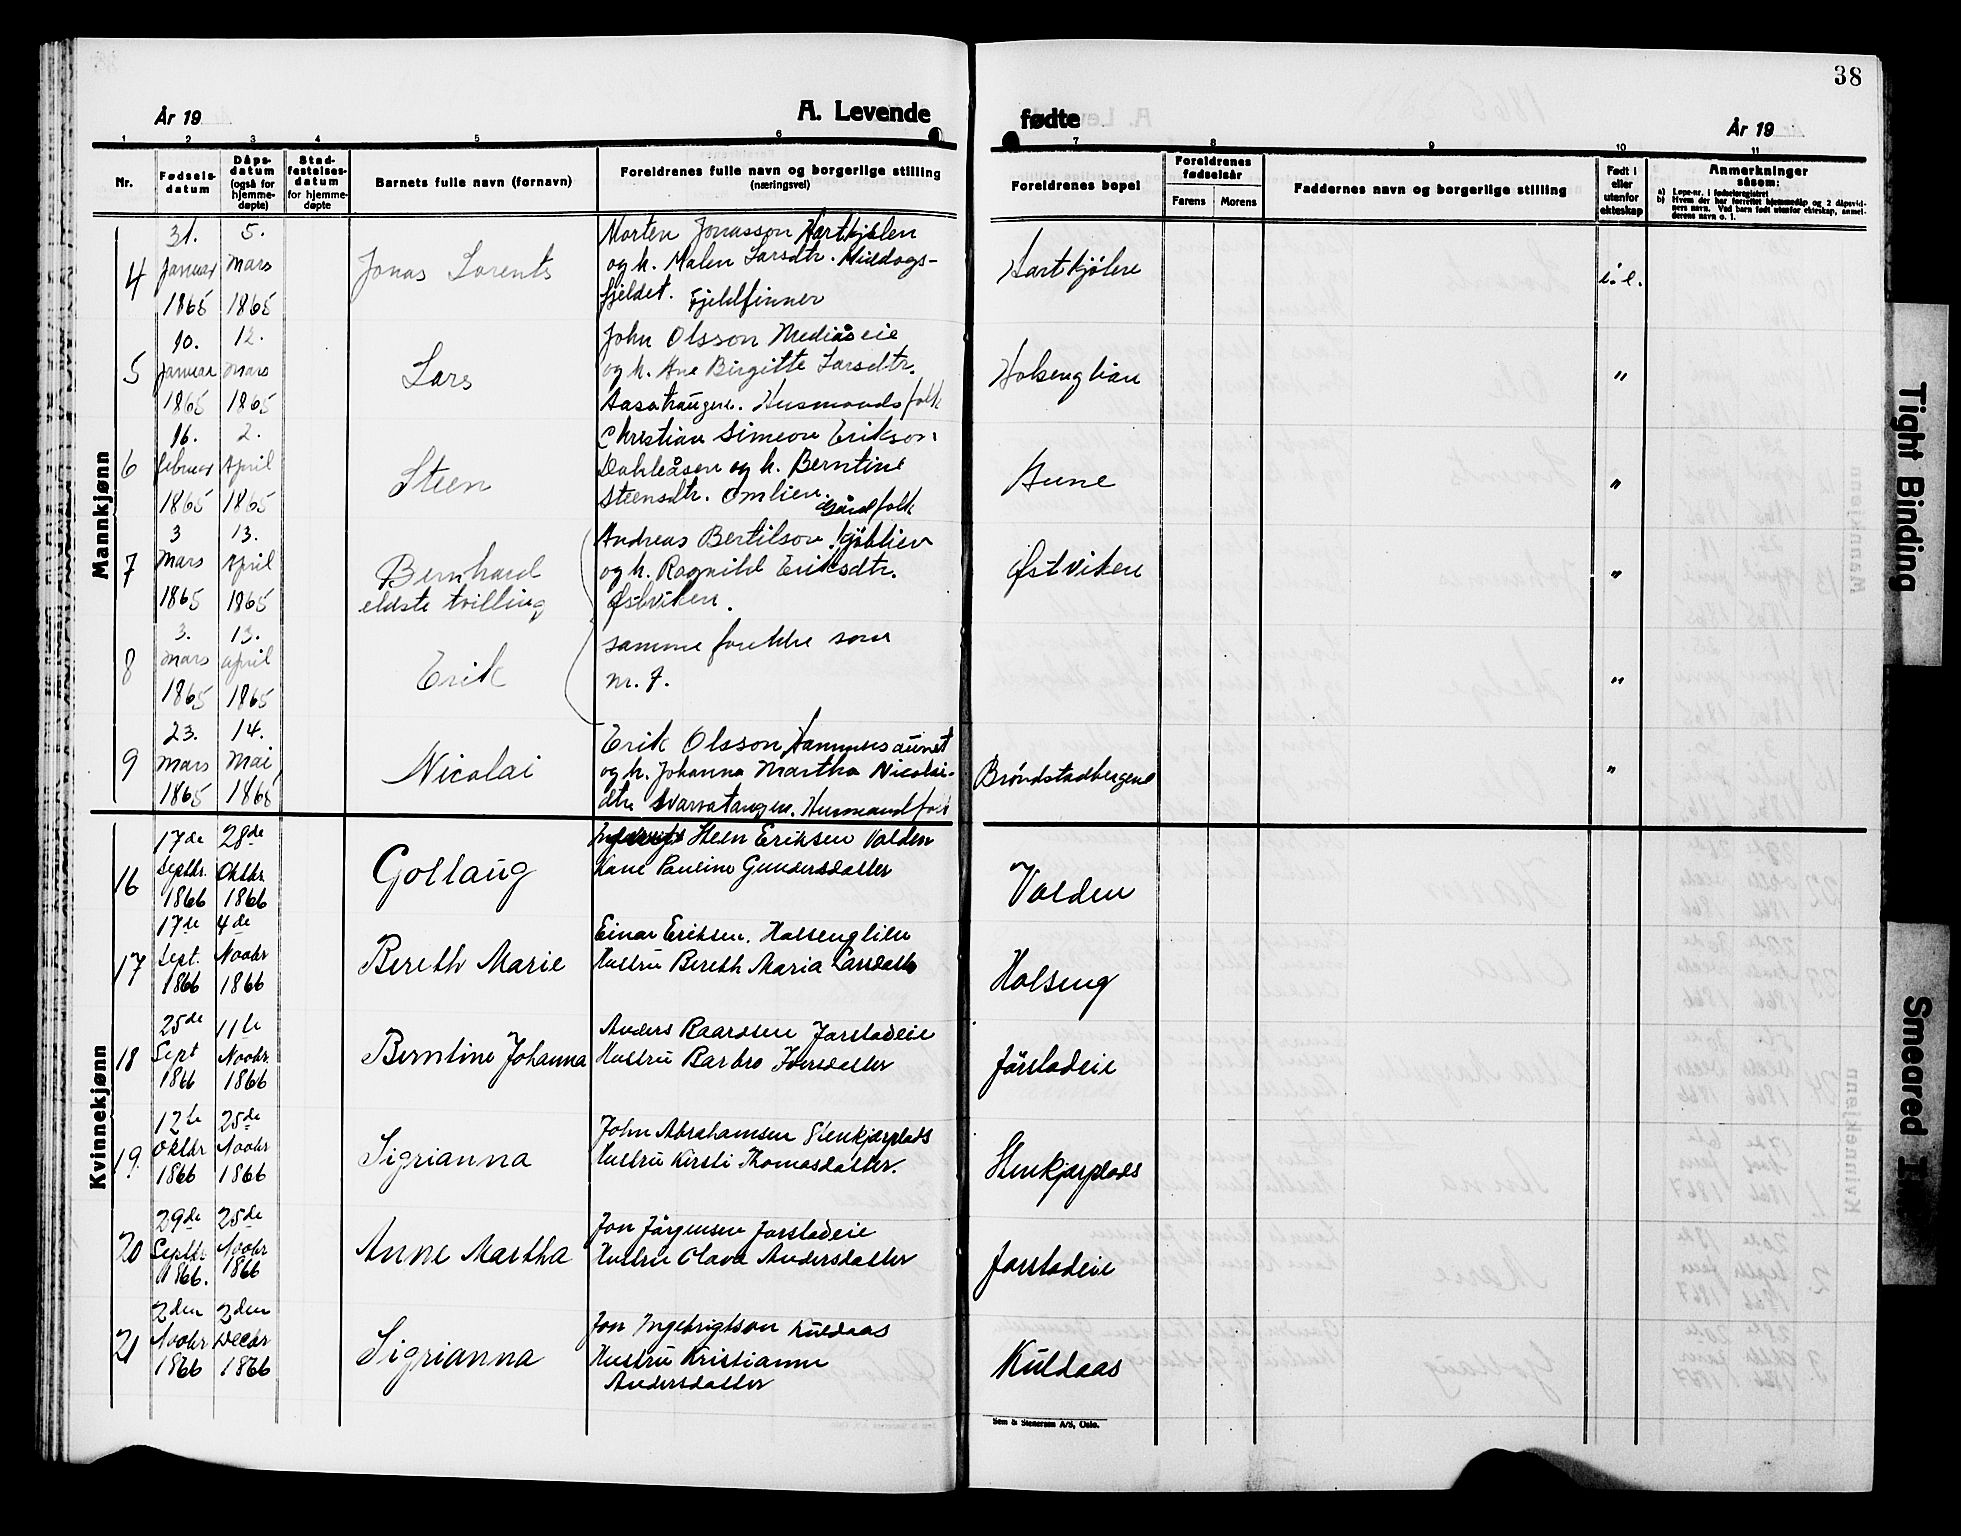 38
År 19
A. Levende
fødte
År 19
1 2 3 4 5 6 7 8 9 10 11
Nr.
Fødsels-
datum
Dåps-
datum
(også for
hjemme-
døpte)
Stad-
festelses-
datum
for hjemme-
døpte
Barnets fulle navn (fornavn)
Foreldrenes fulle navn og borgerlige stilling
(næringsvei)
Foreldrenes bopel
Foreldrenes
fødselsår
Farens Morens
Faddernes navn og borgerlige stilling
Født i
eller
utenfor
ekteskap
Anmerkninger
såsom:
a) Løpe-nr. i fødselsregistret
b) Hvem der har forrettet hjemmedåp og 2 dåpsvid-
ners navn. Ved barn født utenfor ekteskap, anmel-
derens navn o. l.
Mannkjønn
4
31.
Januar
1865
5.
Mars
1865
Jonas Lorents
Morten Jonasson Hartkjølen
og h. Malen Larsdtr. Middags-
fjeldet. Fjeldfinner
Hartkjølen
i. e.
5
10.
Januar
1865
12.
Mars
1865
Lars
John Olsson Mediåseie
og h. Ane Birgitte Larsdtr.
Husmandsfolk
Holsenglian
"
6
16.
Februar
1865
2.
April
1865
Steen
Christian Simeon Erikson
og h. Berntine
Steensdtr. Omlien.
Gårdfolk
Aune
"
7
3
Mars
1865
13.
April
1865
Bernhard
eldste tvilling
Andreas Bertilson
og h. Ragnild Eriksdtr.
Østviken.
Østviken
"
8
3.
Mars
1865
13.
April
1865
Erik
samme foreldre som
nr. 7.
"
9
23.
Mars
1865
14.
Mai
1865
Nicolai
Erik Olsson Hammersaunet
og h. Johanna Martha Nicolai-
dtr. Svarvatangen. Husmandfolk
Brøndstadbergene
"
Kvinnekjønn
16
17de
Septbr.
1866
28de
Oktbr
1866
Gollaug
Steen Eriksen Valden
Kone Pauline Gundersdatter
Valden
17
17de
Sept.
1866
4de
Novbr
1866
Bereth Marie
Einar Eriksen. Holsenglien
Hustru Bereth Maria Larsdatter
Holseng
18
25de
Sept
1866
11te
Novbr
1866
Berntine Johanna
Anders Baardsen Jørstadeie
Hustru Barbro Iversdatter
Jörstadeie
19.
12te
Oktbr
1866
25de
Novbr
1866
Sigrianna
John Abrahamsen Stenkjærplads
Hustru Kirsti Thomasdatter.
Stenkjærplads
20
29de
Septbr
1866.
25de
Novbr
1866
Anne Martha
Jon Jörgensen Jorstadeie
Hustru Olava Andersdatter
Jorstadeie
21
2den
Novbr
1866
2den
Decbr
1866
Sigrianna
Jon Ingebrigtson Kuldaas
Hustru Kristianne
Andersdatter
Kuldaas
Sem & Stenersen A/S, Oslo.
Tight Binding
Smeared I